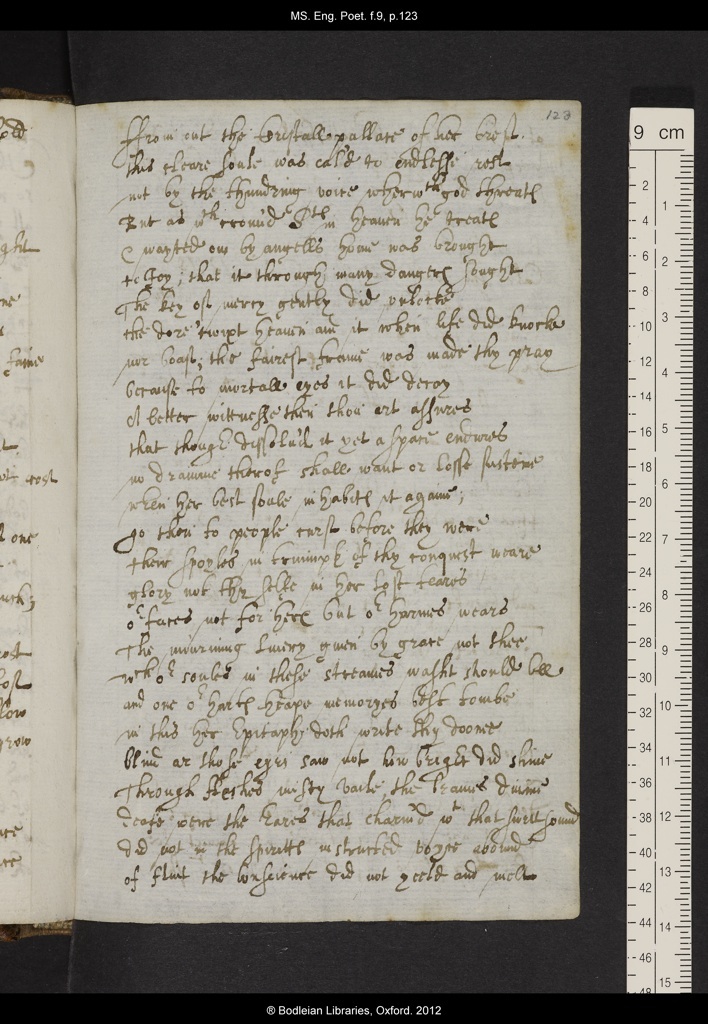 MS. Eng. Poet. f.9, p.123
123
ffrom out the Cristall pallace of her brest
this cleare soule was cal'd to endlesse rest
not by the thundring voice wherwth god threats
But as wth crown'd Sts in heaven he treats
& wayted on by angells home was brought
to Joy, that it through many dangers sought
The key of mercy gently did unlocke
the dore twixt heaven and it when life did knocke
nor boast, the fairest frame was made thy pray
because to mortall eyes it did decay
A better wittnesse then thou art assures
that though dissolu'd it yet a space endures
no dramme therof shall want or losse susteine
when her best soule inhabits it againe;
go then to people curst before they were
their spoyles in triumph of thy conquest weare
glory not thy selfe in her lost teares
or faces not for hers but or harmes weares
The mourning livery given by grace not thee
wch or soules in these streames washt should bee
and one or harts heape memoryes best tombe
in this her Epitaph doth write thy doome
blind ar those eyes saw not how bright did shine
Through fleshes misty vaile, the beames divine
Deafe were the Eares that charm'd wt that swett sound
did not in the spiritts instructed voyce abound
of flint the Conscience did not yeeld and melt
® Bodleian Libraries, Oxford. 2012